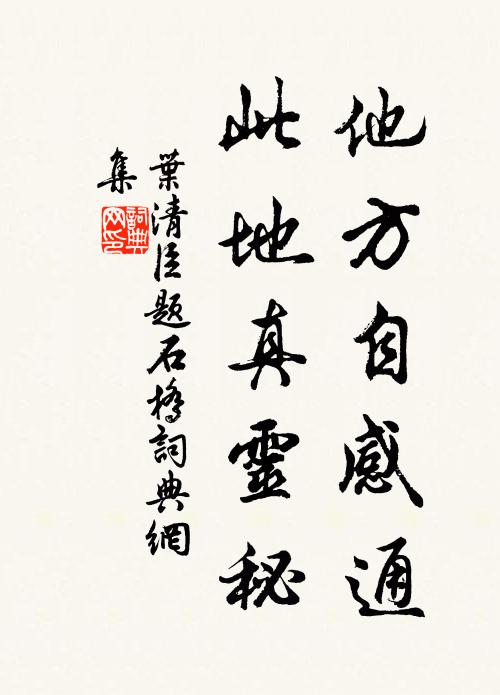 他方自感通
此地真靈秘
葉清臣題石橋詞典網
集
詞典
网印